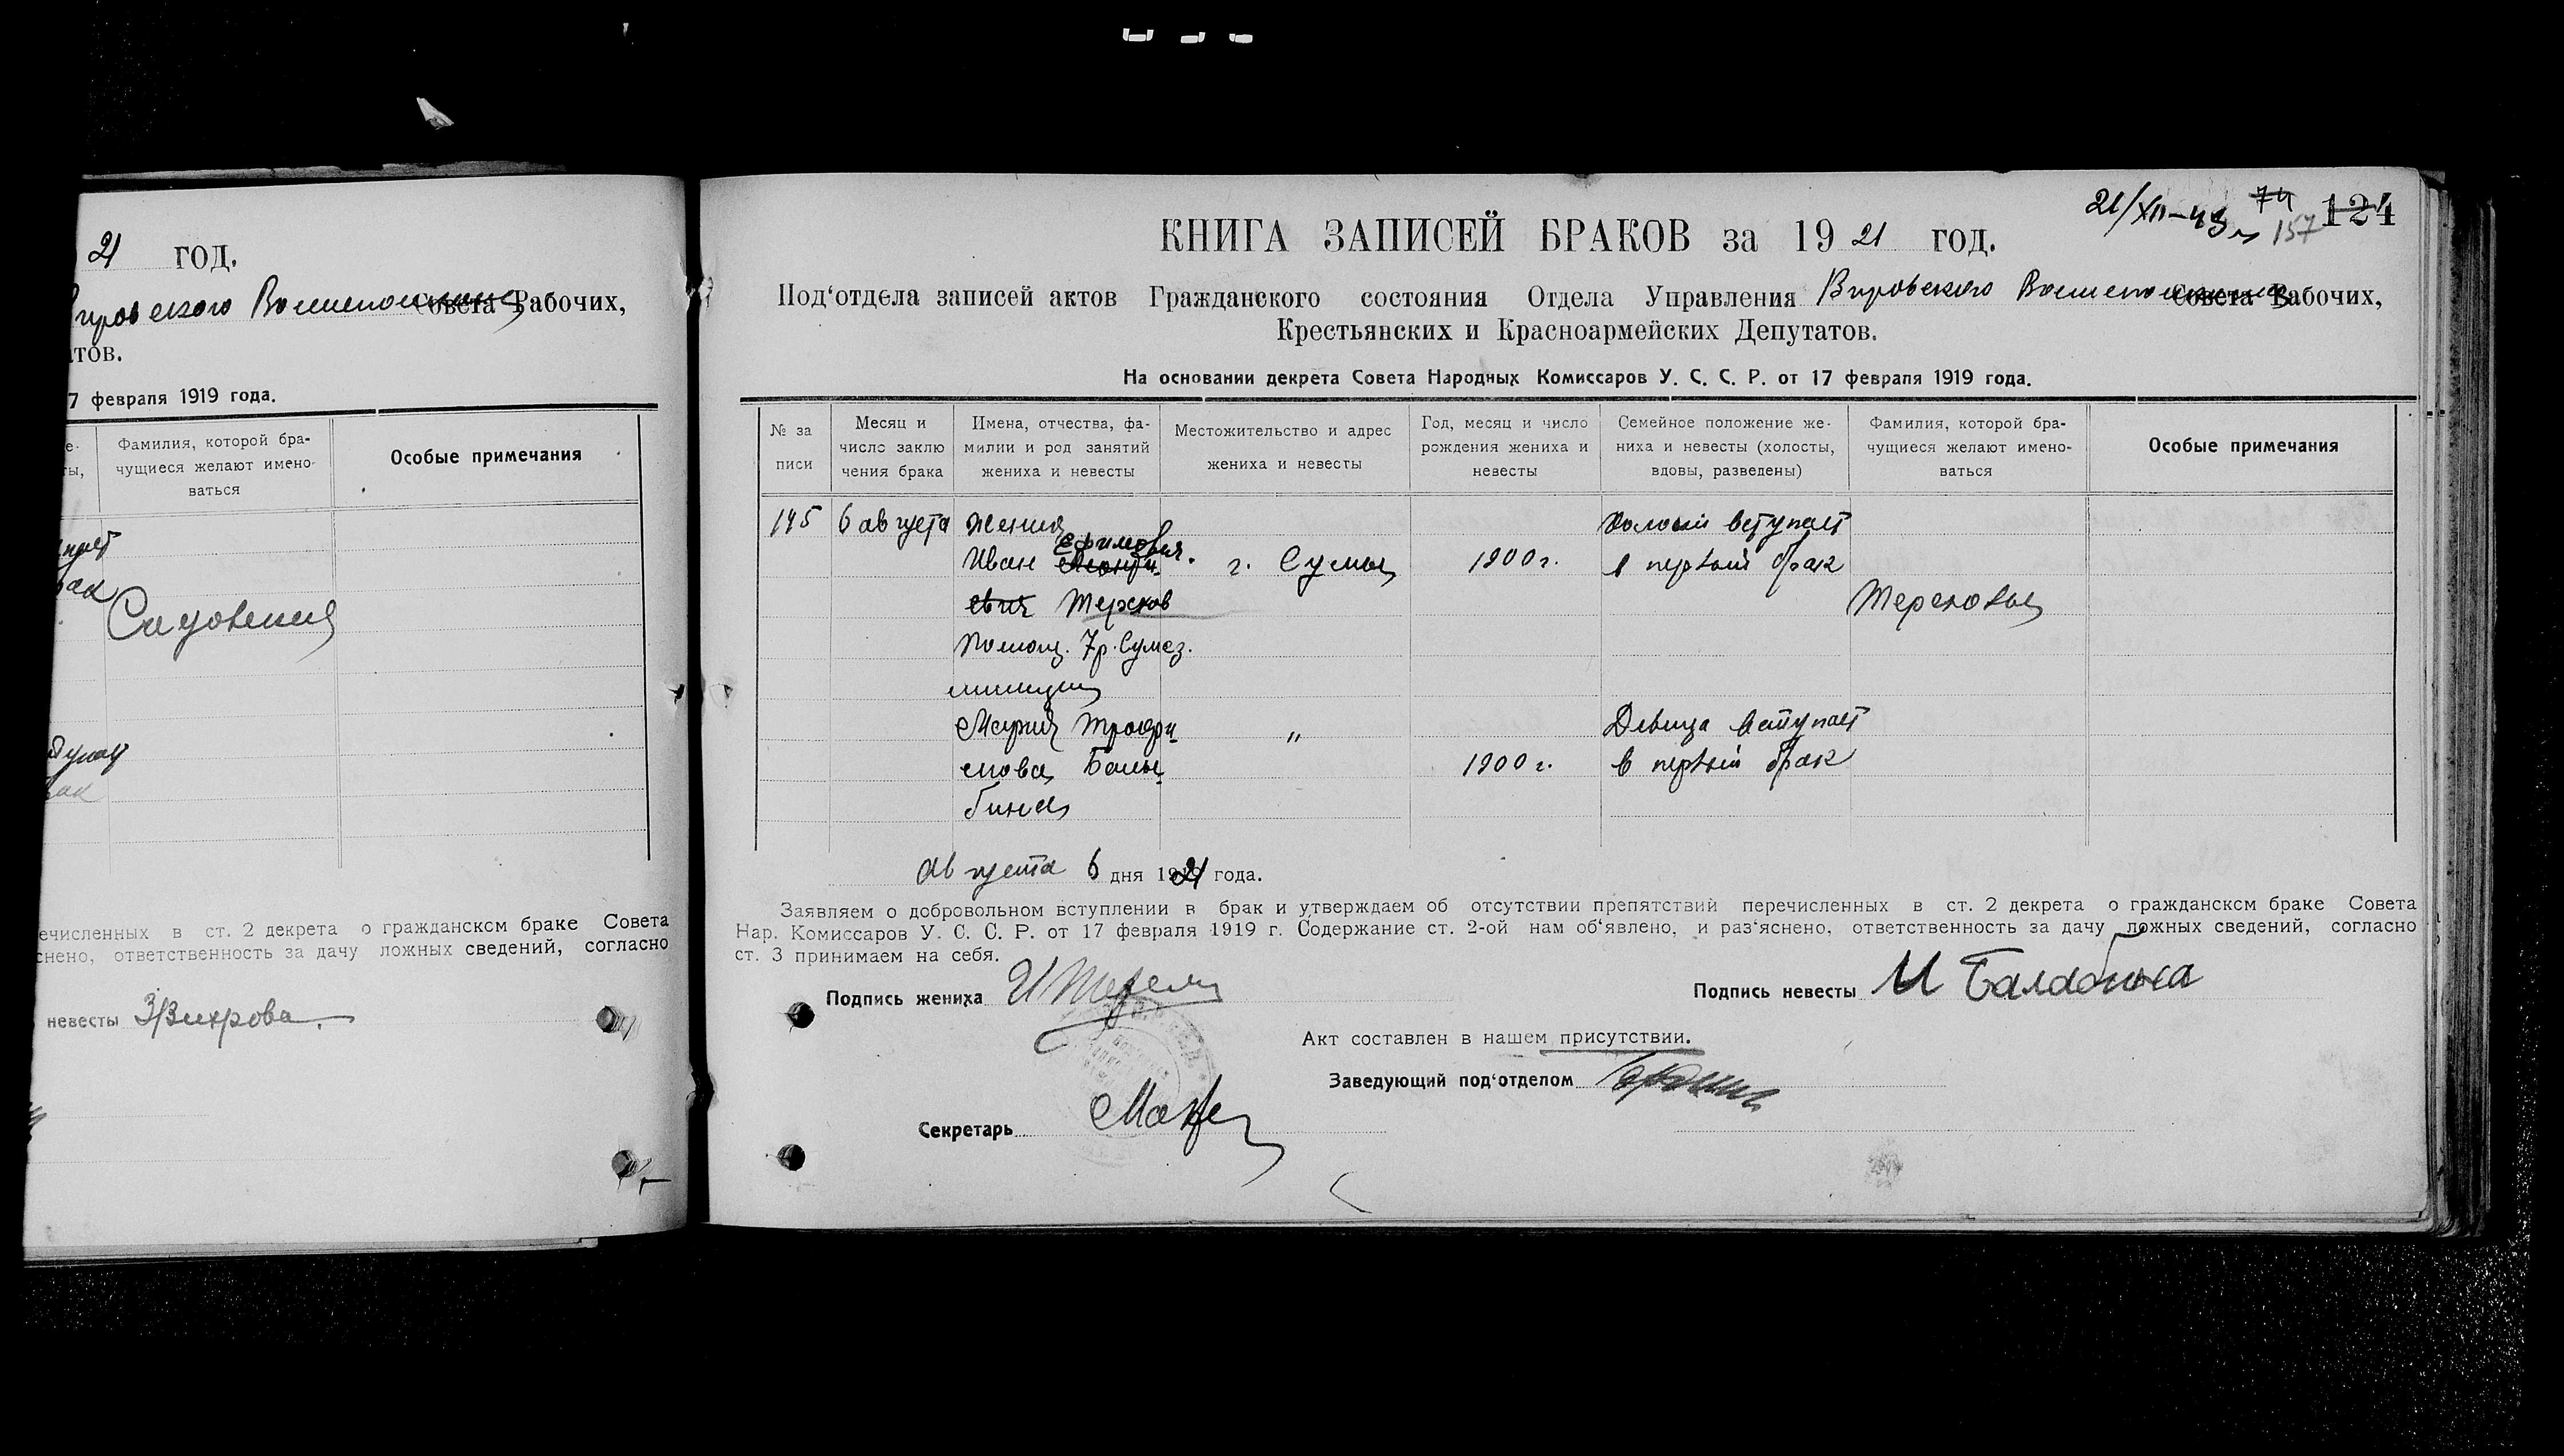 21 год.
Вировского Волисполкома Совета Рабочих,
атов.
7 февраля 1919 года.
Фамилия, которой бра-
чущиеся желают имено-
ваться
Особые примечания
Садовский
ечисленных в ст. 2 декрета о гражданском браке Совета
снено, ответственность за дачу ложных сведений, согласно
невесты
21/XII-49 74 157 124
КНИГА ЗАПИСЕЙ БРАКОВ за 1921 год.
Под'отдела записей актов Гражданского состояния Отдела Управления Вировского Волисполкома Совета Рабочих,
Крестьянских и Красноармейских Депутатов.
На основании декрета Совета Народных Комиссаров У. С. С. Р. от 17 февраля 1919 года.
№ за
писи
Месяц и
число заклю
чения брака
Имена, отчества, фа-
милии и род занятий
жениха и невесты
Местожительство и адрес
жениха и невесты
Год, месяц и число
рождения жениха и
невесты
Семейное положение же-
ниха и невесты (холосты,
вдовы, разведены)
Фамилия, которой бра-
чущиеся желают имено-
ваться
Особые примечания
145 6 августа жених холост вступает
Ефимович
Иван г. Сумы 1900 г. в первый брак
евич Терехов Тереховы
Помощ. 7 р. Сумск.
милиции
Мария Трофи " Девица вступает
мова Бала 1900 г. в первый брак
бина
Августа 6 дня 1921 года.
Заявляем о добровольном вступлении в брак и утверждаем об отсутствии препятствий перечисленных в ст. 2 декрета о гражданском браке Совета
Нар. Комиссаров У. С. С. Р. от 17 февраля 1919 г. Содержание ст. 2-ой нам об'явлено, и раз'яснено, ответственность за дачу ложных сведений, согласно
ст. 3 принимаем на себя.
Подпись жениха Подпись невесты М Балабина
Акт составлен в нашем присутствии.
Заведующий под'отделом
Секретарь